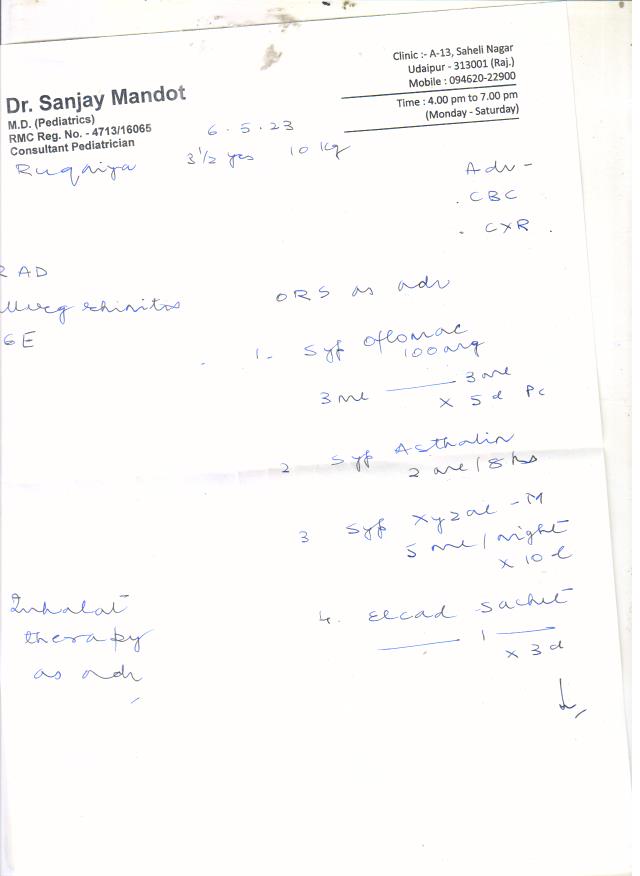 Clinic :- A-13, Saheli Nagar
Udaipur - 313001 (Raj.)
Mobile : 094620-22900
Time : 4.00 pm to 7.00 pm
(Monday - Saturday)
Dr. Sanjay Mandot
M.D. (Pediatrics)
RMC Reg. No. - 4713/16065
Consultant Pediatrician
6.5.23
Ruqaiya 3 1/2 yrs 10 kg
Adv -
. CBC
. CXR .
RAD
rhinitis
GE
ORS as adv
1. Syp Oflomac
100 mg
3 ml ——— 3 ml
x 5 d Pc
2 Syp Asthalin
2 ml / 8 hrs
3 Syp Xyzal - M
5 ml / night
x 10 d
Inhalat
therapy
as adv
4. Elcad sachet
——— 1 ———
x 3 d